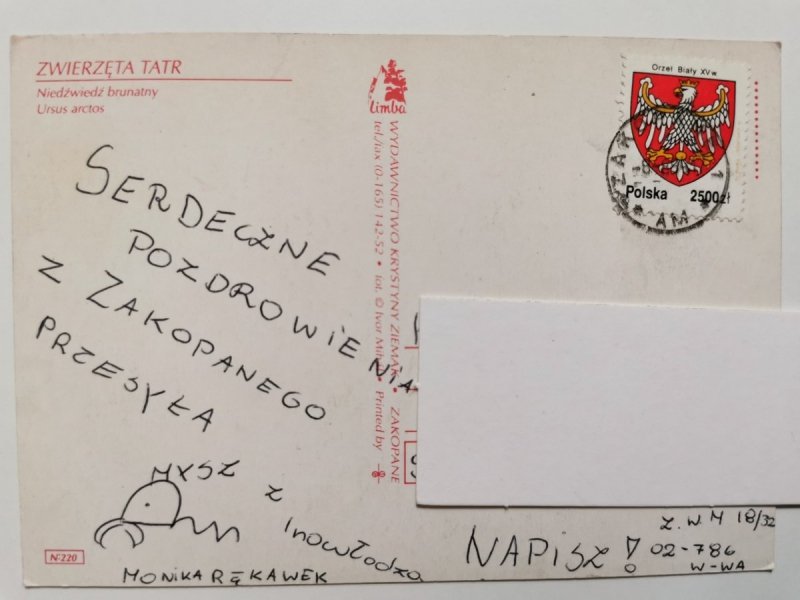 ZWIERZĘTA TATR
Niedźwiedź brunatny
Ursus arctos
SERDECZNE
POZDROWIENIA
Z ZAKOPANEGO
PRZESYŁA
MYSZ Z
INOWŁODZA
MONIKA RĘKAWEK
N-220
limba
WYDAWNICTWO KRYSTYNY ZIEMAK ZAKOPANE
tel./fax (0-165) 142-52 • fot. © Ivor Mih • Printed by
Orzeł Biały XVw
Polska 2500zł
ZAK 1
AM
NAPISZ!
Z.W.M 18/32
02-786
W-WA